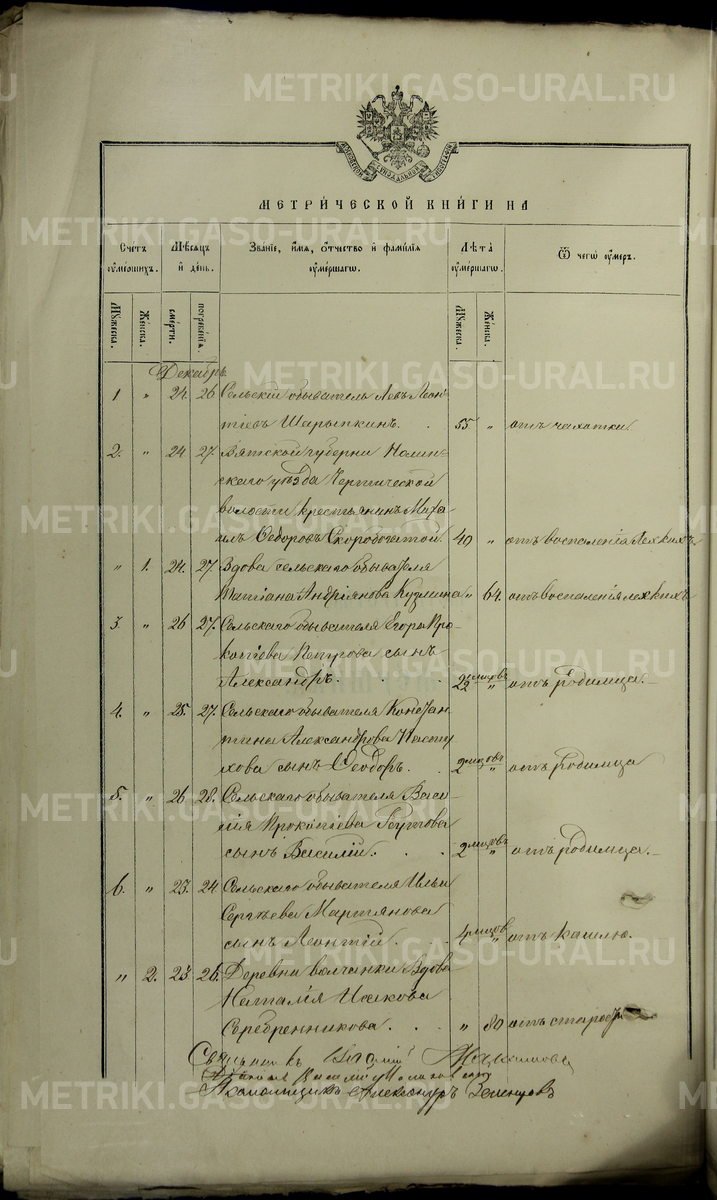 METRIKI.GASO-URAL.RU
МЕТРИЧЕСКОЙ КНИГИ НА
Счетъ умершихъ.
Мѣсяцъ и день.
Званіе, имя, отчество и фамилія умершаго.
Лѣта умершаго.
Ѿ чегѡ умеръ.
Мужеска.
Женска.
смерти.
погребенія.
Мужеска.
Женска.
Декабрь
1 " 24 26 Сельскій обыватель Левъ Леон-
тіевъ Шарыпкинъ. 55 " отъ чахотки.
2. " 24 27. Вятской губерніи Нолин-
скаго уѣзда
волости крестьянинъ Миха-
илъ Ѳедоровъ Скоробогатой. 40 " отъ воспаленія легкихъ
" 1. 24. 27. Вдова сельскаго обывателя
Татіана Андріянова Кузмина " 64. отъ воспаленія легкихъ
3 " 26 27. Сельскаго обывателя Егора Про-
копіева Петрова сынъ
Александръ. отъ родимца.
4. " 25. 27 Сельскаго обывателя Констан-
тина Александрова
сынъ Ѳеодоръ. 2 мцовъ " отъ родимца
5. " 26 28. Сельскаго обывателя Васи-
лія Прокопіева
сынъ Василій. 2 мцовъ " отъ родимца.
6. " 23. 24 Сельскаго обывателя Ильи
Сергѣева Мартьянова
сынъ Леонтій. 4 мцов " отъ кашлю.
" 2. 23 26. Деревни Волчанки вдова
Наталія Исакова
Серебренникова. " 80 отъ старости
Священникъ
Псаломщикъ Александръ Зеленцовъ